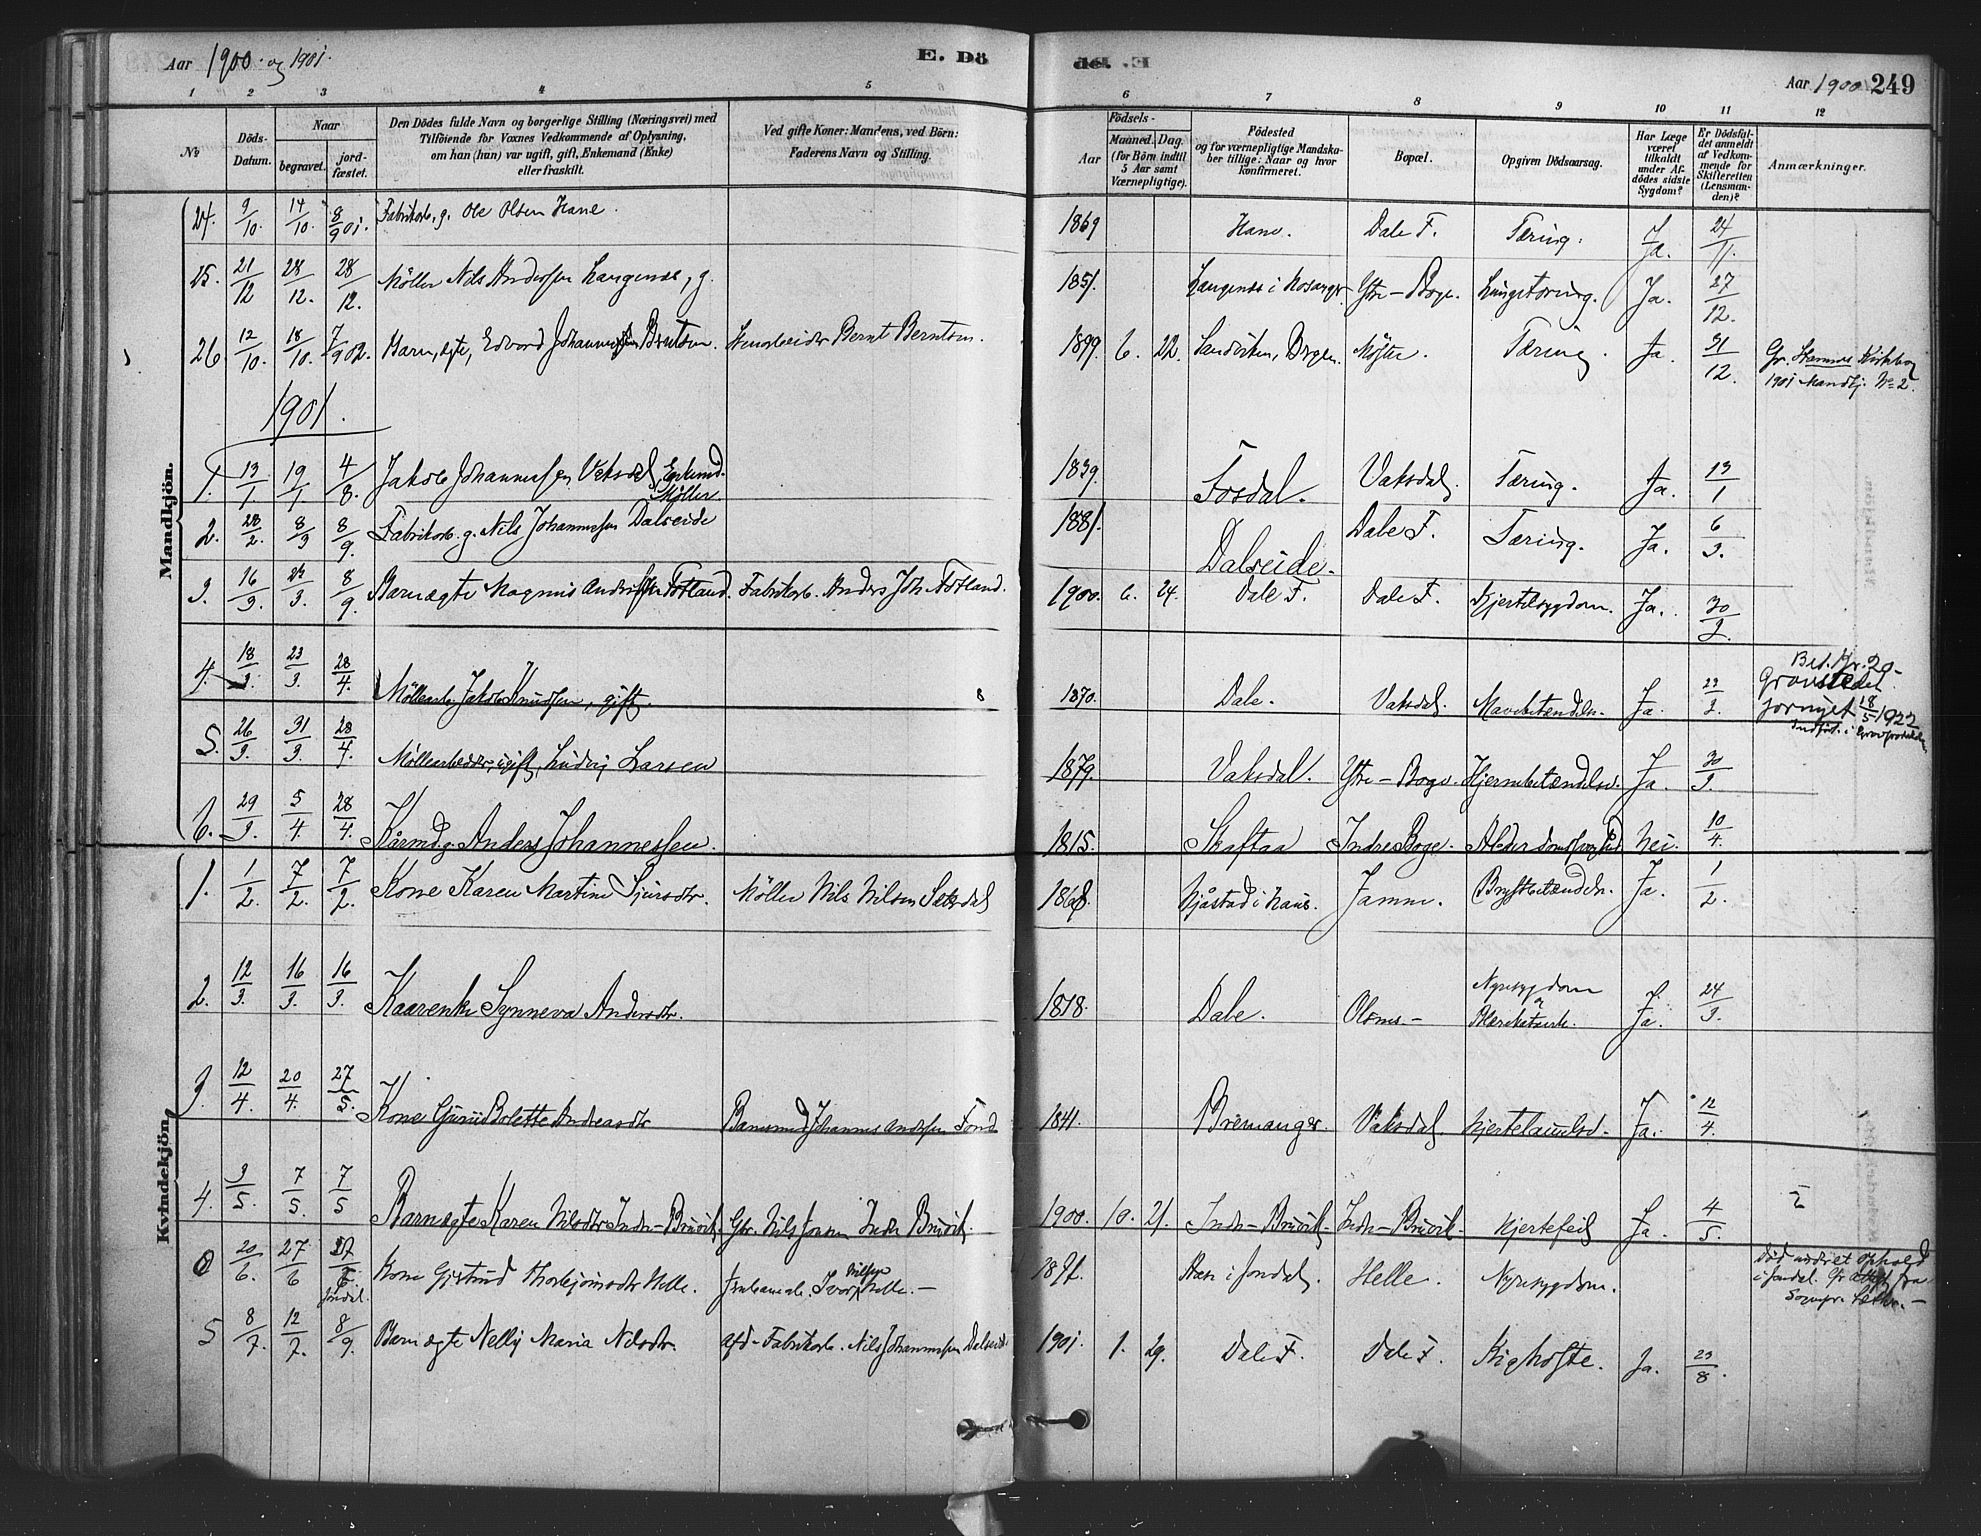 Aar 1900 og 1901.
E. Dö
de. E
Aar 1900 249
1 2 3 4 5 6 7 8 9 10 11 12
No
Döds-Datum.
Naar
begravet.
jord-fæstet.
Den Dödes fulde Navn og borgerlige Stilling (Næringsvei) med
Tilföiende for Voxnes Vedkommende af Oplysning,
om han (hun) var ugift, gift, Enkemand (Enke)
eller fraskilt.
Ved gifte Koner: Mandens, ved Börn:
Faderens Navn og Stilling.
Födsels-
Aar
Maaned. Dag.
(for Börn indtil
5 Aar samt
Værnepligtige).
Födested
og for værnepligtige Mandska-
ber tillige: Naar og hvor
konfirmeret.
Bopæl.
Opgiven Dödsaarsag.
Har Læge
været
tilkaldt
under Af-
dödes sidste
Sygdom?
Er Dödsfal-
det anmeldt
af Vedkom-
mende for
Skifteretten
(Lensman-
den)?
Anmærkninger.
Mandkjön.
24. 9/10. 14/10. 8/9 01. Fabrikarb., g. Ole Olsen Hane. 1869 Hane. Dale F. Tæring. Ja. 24/11.
25. 21/12 28/12. 28/12. Möller Nils Anderssen Langenes, g. 1851. Langenes i Hosanger Ytre-Boge. Lungetæring. Ja. 27/12.
26 12/10. 18/10. 7/9 02. Barn, ægte, Edvard Johannessen Berntsen. Bernt Berntsen. 1899. 6. 22. Sandviken, Bergen. Tæring. Ja. 31/12. Gr. Stamnes Kirkebog
1901 Mandkj. No 2.
1901.
1. 13/1 19/1 4/8. Jakob Johannessen Vaksdal, Enkemd.
Möller 1839. Fosdal. Vaksdal. Tæring. Ja. 13/1
2. 28/2. 8/3 8/9. Fabrikarb. g. Nils Johannessen Dalseide 1881. Dalseide. Dale F. Tæring. Ja. 6/3.
3. 16/3. 23/3. 8/9. Barn ægte Magnus Anderssen Fotland. Fabrikarb. Anders Joh. Fotland. 1900. 6. 24. Dale F. Dale F. Kjertelsygdom. Ja. 30/3.
4. 18/3. 23/3. 28/4. Möllearb. Jakob Knudssen, gift. 1870. Dale. Vaksdal. Mavebetændelse. Ja. 23/3. Bet. Kr. 20-
Gravstedet
fornyet 18/5 1922
5. 26/3. 31/3. 28/4. Möllearbeider, ugift, Ludvig Larsen 1879. Vaksdal. Ytre-Boge. Hjernebetændelse. Ja. 30/3.
6. 29/3. 5/4 28/4. Kårmd. g. Anders Johannessen. 1815. Skaftaa Indre Boge. Alderdomssvaghed Nei. 10/4.
Kvindekjön.
1. 1/2. 7/2. 7/2. Kone Karen Martine Sjursdtr. Möller Nils Nilsen 1868. Njåstad i Haus. Jamne. Brystbetændelse. Ja. 1/2.
2. 12/3. 16/3. 16/3. Kaarenke Synneva Andersdtr. 1818. Dale. Olsnes.- Nyresygdom
og
Blærekatarrh. Ja. 24/3.
3. 12/4. 20/4. 27/5. Kone Guruid Bolette Andreasdtr Johannes Anderssen Fond 1841. Bremanger. Vaksdal. Hjertelamelse. Ja. 12/4.
4. 3/5. 7/5. 7/5 Barn ægte Karen Nilsdtr Indre-Bruvik. Gbr. Nils Jonsen Indre Bruvik. 1900. 10. 21. Indre-Bruvik. Indre-Bruvik. Hjertefeil Ja. 4/5.
0 20/6. 27/6 27/6.
Jondal. Kone Gjertrud Thorbjörnsdtr Helle. Ivar Nilsen Helle.- i Jondal. Helle. Nyresygdom. Död under et Ophold
i Jondal. Gr. Attest fra
Sognepr.
5 8/7. 12/7. 8/9. Barn ægte Nelly Maria Nilsdtr. afd. Fabrikarb. Nils Johannessen Dalseide 1901 1. 29. Dale F. Dale F. Kighoste. Ja. 23/8.